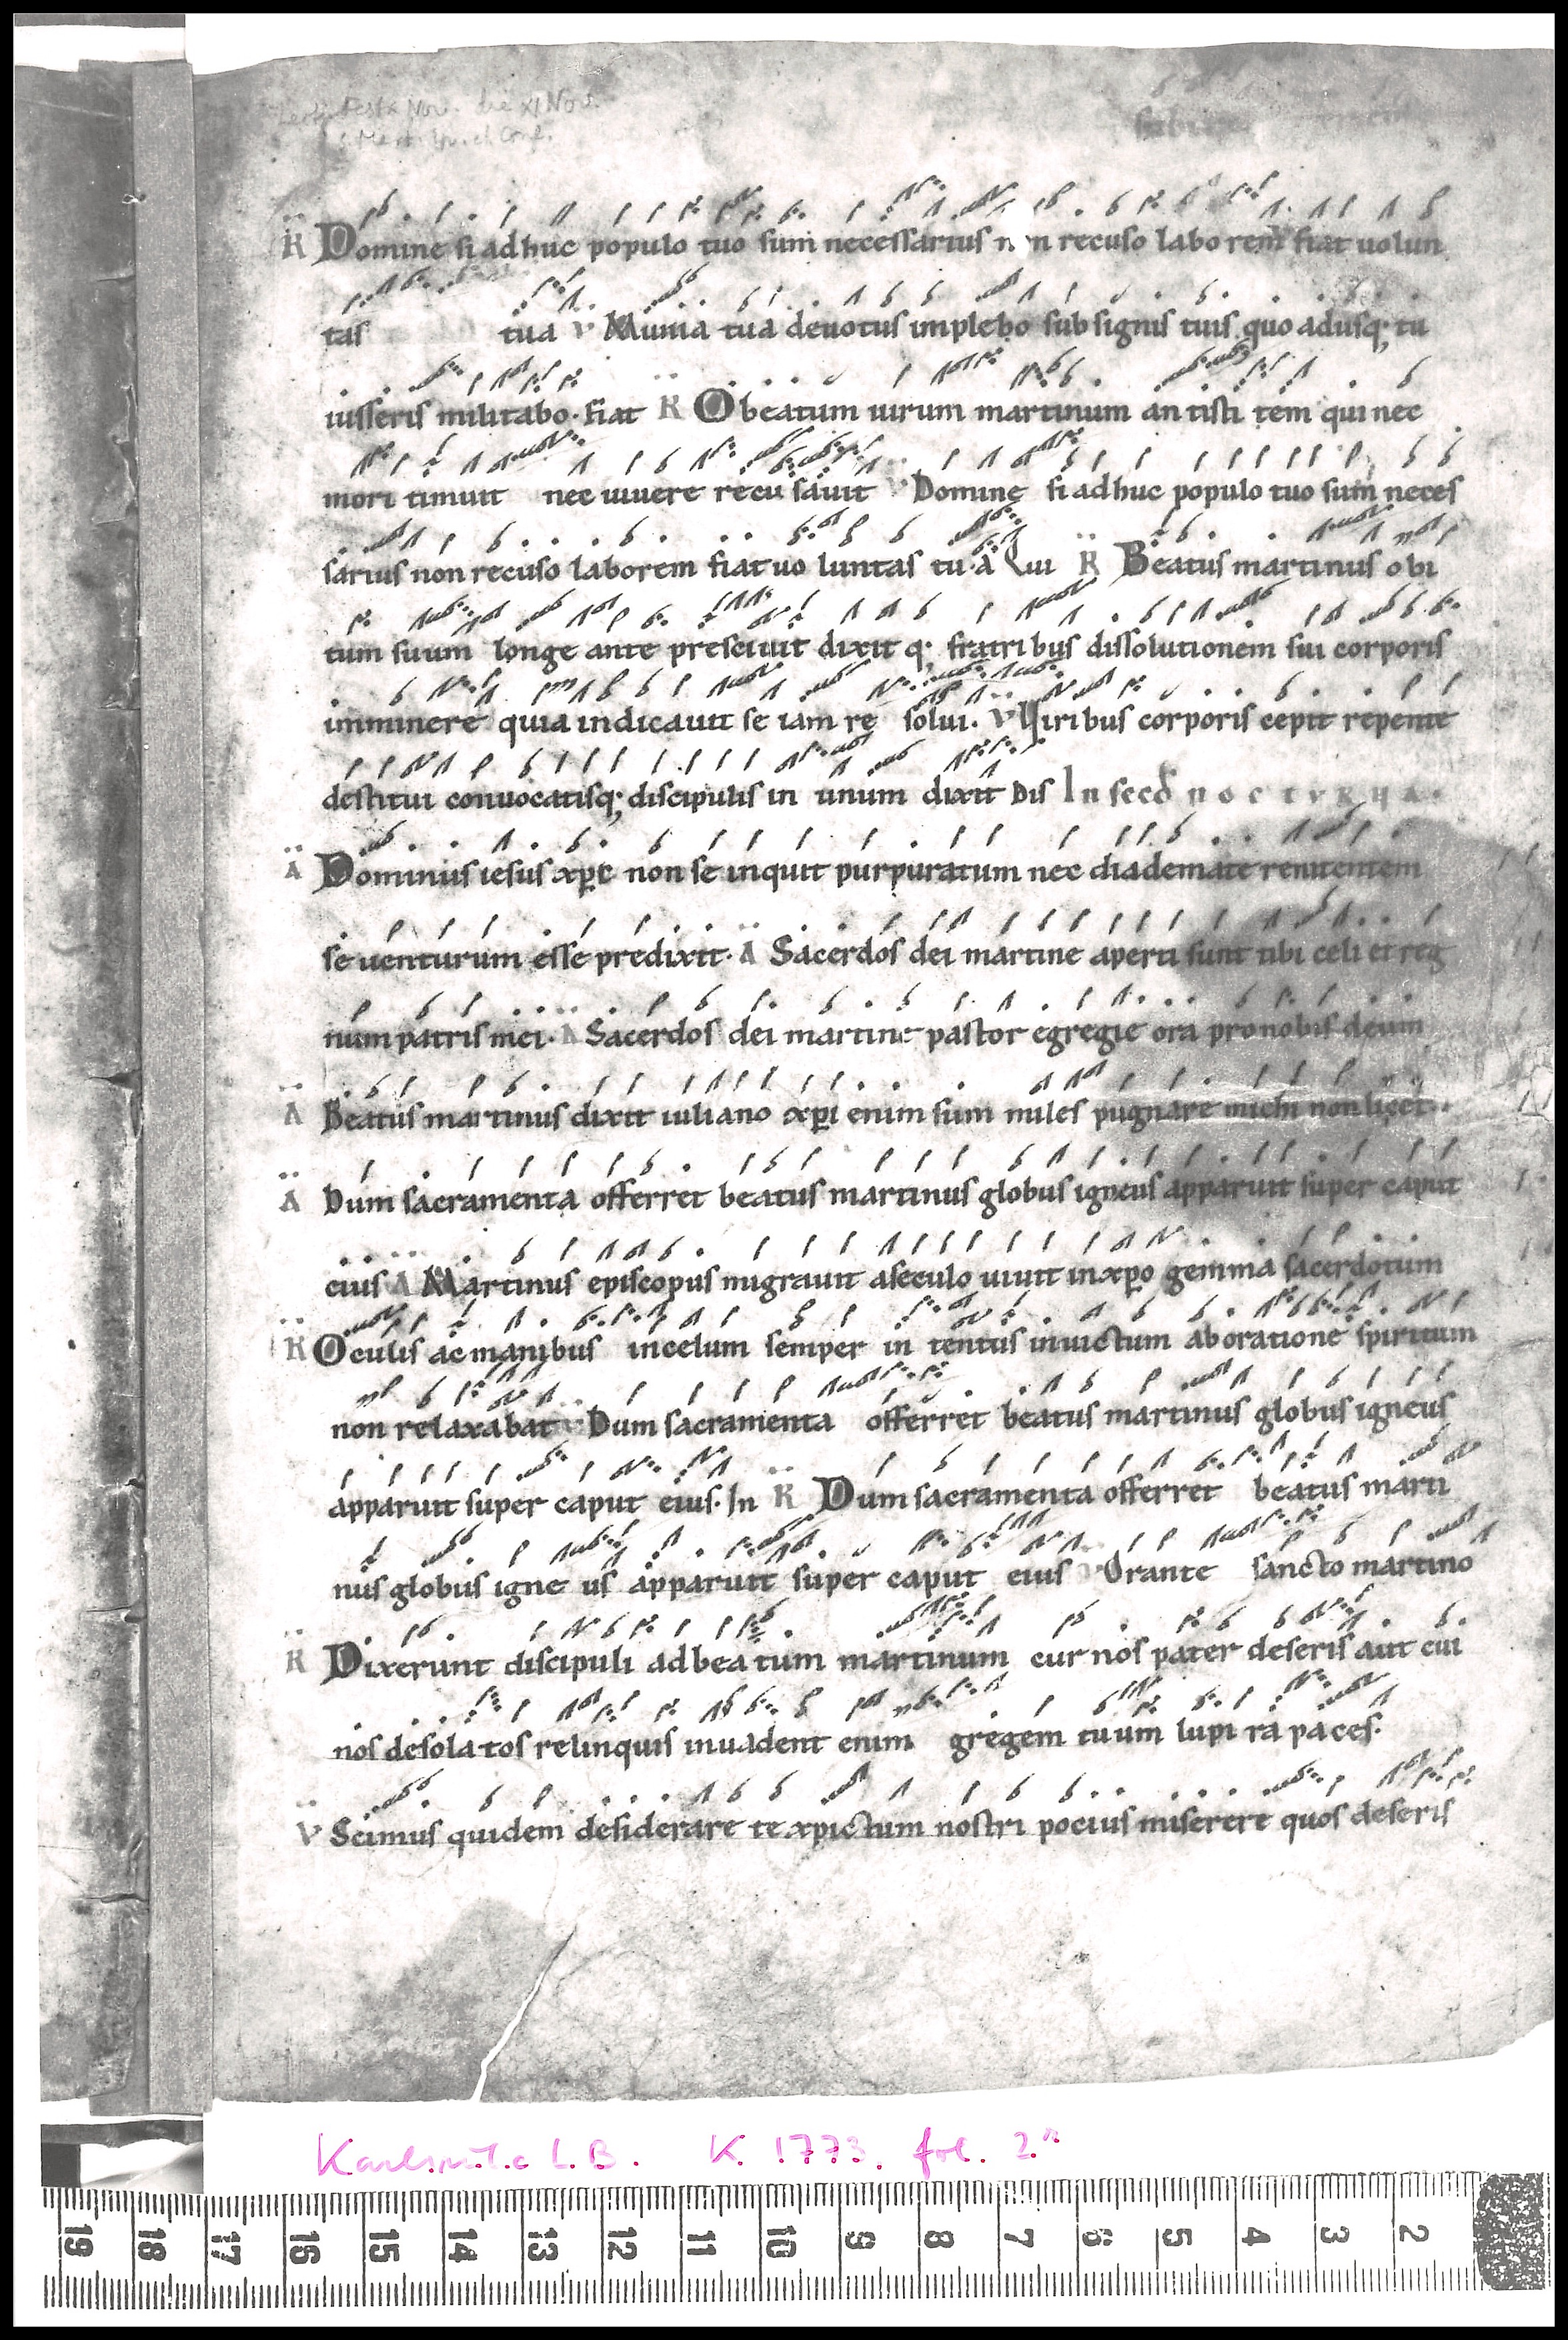 die XI Nov.
R Domine si adhuc populo tuo sum necessarius n n recuso laborem fiat uolun
tas tua V Munia tua deuotus implebo sub signis tuis quo adusq; tu
iusseris militabo. fiat R O beatum uirum martinum antisti tem qui nec
mori timuit nec uiuere recu sauit V Domine si adhuc populo tuo sum neces
sarius non recuso laborem fiat uo luntas tu a Qui R Beatus martinus obi
tum suum longe ante presciuit dixit q; fratribus dissolutionem sui corporis
imminere quia indicauit se iam re solui. V Uiribus corporis cepit repente
destitui conuocatisq; discipulis in unum dixit Dis In secd nocturna.
A Dominus iesus xpc non se inquit purpuratum nec diademate renitentem
se uenturum esse predixit. A Sacerdos dei martine aperti sunt tibi celi et reg
num patris mei. A Sacerdos dei martine pastor egregie ora pro nobis deum
A Beatus martinus dixit iuliano xpi enim sum miles pugnare michi non licet.
A Dum sacramenta offerret beatus martinus globus igneus apparuit super caput
eius A Martinus episcopus migrauit a seculo uiuit in xpo gemma sacerdotum
R Oculis ac manibus in celum semper in tentus inuictum ab oratione spiritum
non relaxabat V Dum sacramenta offerret beatus martinus globus igneus
apparuit super caput eius. In R Dum sacramenta offerret beatus marti
nus globus igne us apparuit super caput eius V Orante sancto martino
R Dixerunt discipuli ad bea tum martinum cur nos pater deseris aut cui
nos desola tos relinquis inuadent enim gregem tuum lupi ra paces.
V Scimus quidem desiderare te xpictum nostri pocius miserere quos deseris
Karlsruhe L.B. K. 1773. fol. 2r
19 18 17 16 15 14 13 12 11 10 9 8 7 6 5 4 3 2